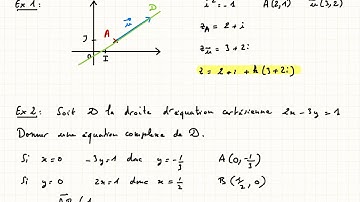 Ex 1: i² = -1 A(2,1) u(3,2)
D
u
A
J
0 I
z_A = 2 + i
z_u = 3 + 2i
z = 2 + i + k(3+2i)
Ex 2: Soit D la droite d'équation cartésienne 2x - 3y = 1
Donner une équation complexe de D.
Si x = 0 -3y = 1 donc y = -1/3 A(0, -1/3)
Si y = 0 2x = 1 donc x = 1/2 B(1/2, 0)